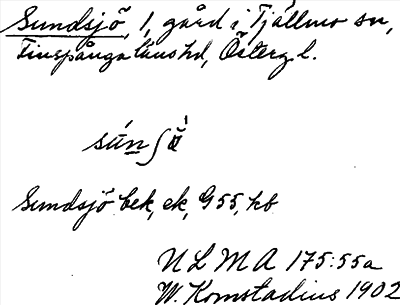 Sundsjö, 1, gård i Tjällmo sn,
Finspånga läns hd, Österg. l.
Sundsjö bek, ek, G 55, hb
ULMA 175:55a
W. Komstadius 1902